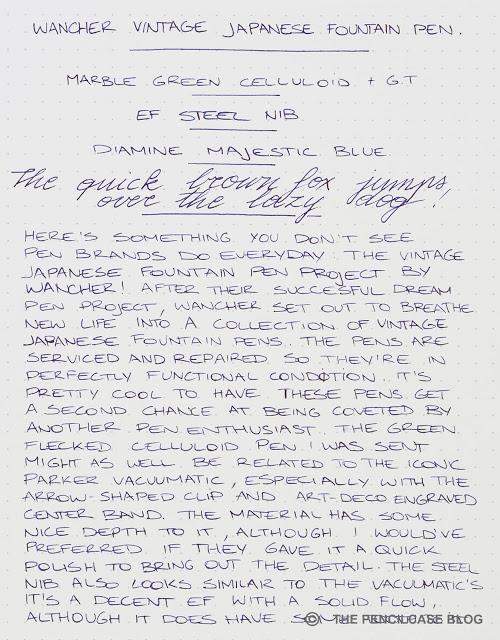 WANCHER VINTAGE JAPANESE FOUNTAIN PEN.
MARBLE GREEN CELLULOID + G.T
EF STEEL NIB
DIAMINE MAJESTIC BLUE
The quick brown fox jumps,
over the lazy dog!
HERE'S SOMETHING YOU DON'T SEE
PEN BRANDS DO EVERYDAY: THE VINTAGE
JAPANESE FOUNTAIN PEN PROJECT BY
WANCHER! AFTER THEIR SUCCESFUL DREAM
PEN PROJECT, WANCHER SET OUT TO BREATHE
NEW LIFE INTO A COLLECTION OF VINTAGE
JAPANESE FOUNTAIN PENS. THE PENS ARE
SERVICED AND REPAIRED SO THEY'RE IN
PERFECTLY FUNCTIONAL CONDITION. IT'S
PRETTY COOL TO HAVE THESE PENS GET
A SECOND CHANCE AT BEING COVETED BY
ANOTHER PEN ENTHUSIAST. THE GREEN
FLECKED CELLULOID PEN I WAS SENT
MIGHT AS WELL BE RELATED TO THE ICONIC
PARKER VACUUMATIC, ESPECIALLY WITH THE
ARROW-SHAPED CLIP AND ART-DECO ENGRAVED
CENTER BAND. THE MATERIAL HAS SOME
NICE DEPTH TO IT, ALTHOUGH I WOULD'VE
PREFERRED IF THEY GAVE IT A QUICK
POLISH TO BRING OUT THE DETAIL. THE STEEL
NIB ALSO LOOKS SIMILAR TO THE VACUUMATIC'S
IT'S A DECENT EF WITH A SOLID FLOW,
ALTHOUGH IT DOES HAVE
© THE PENCILCASE BLOG